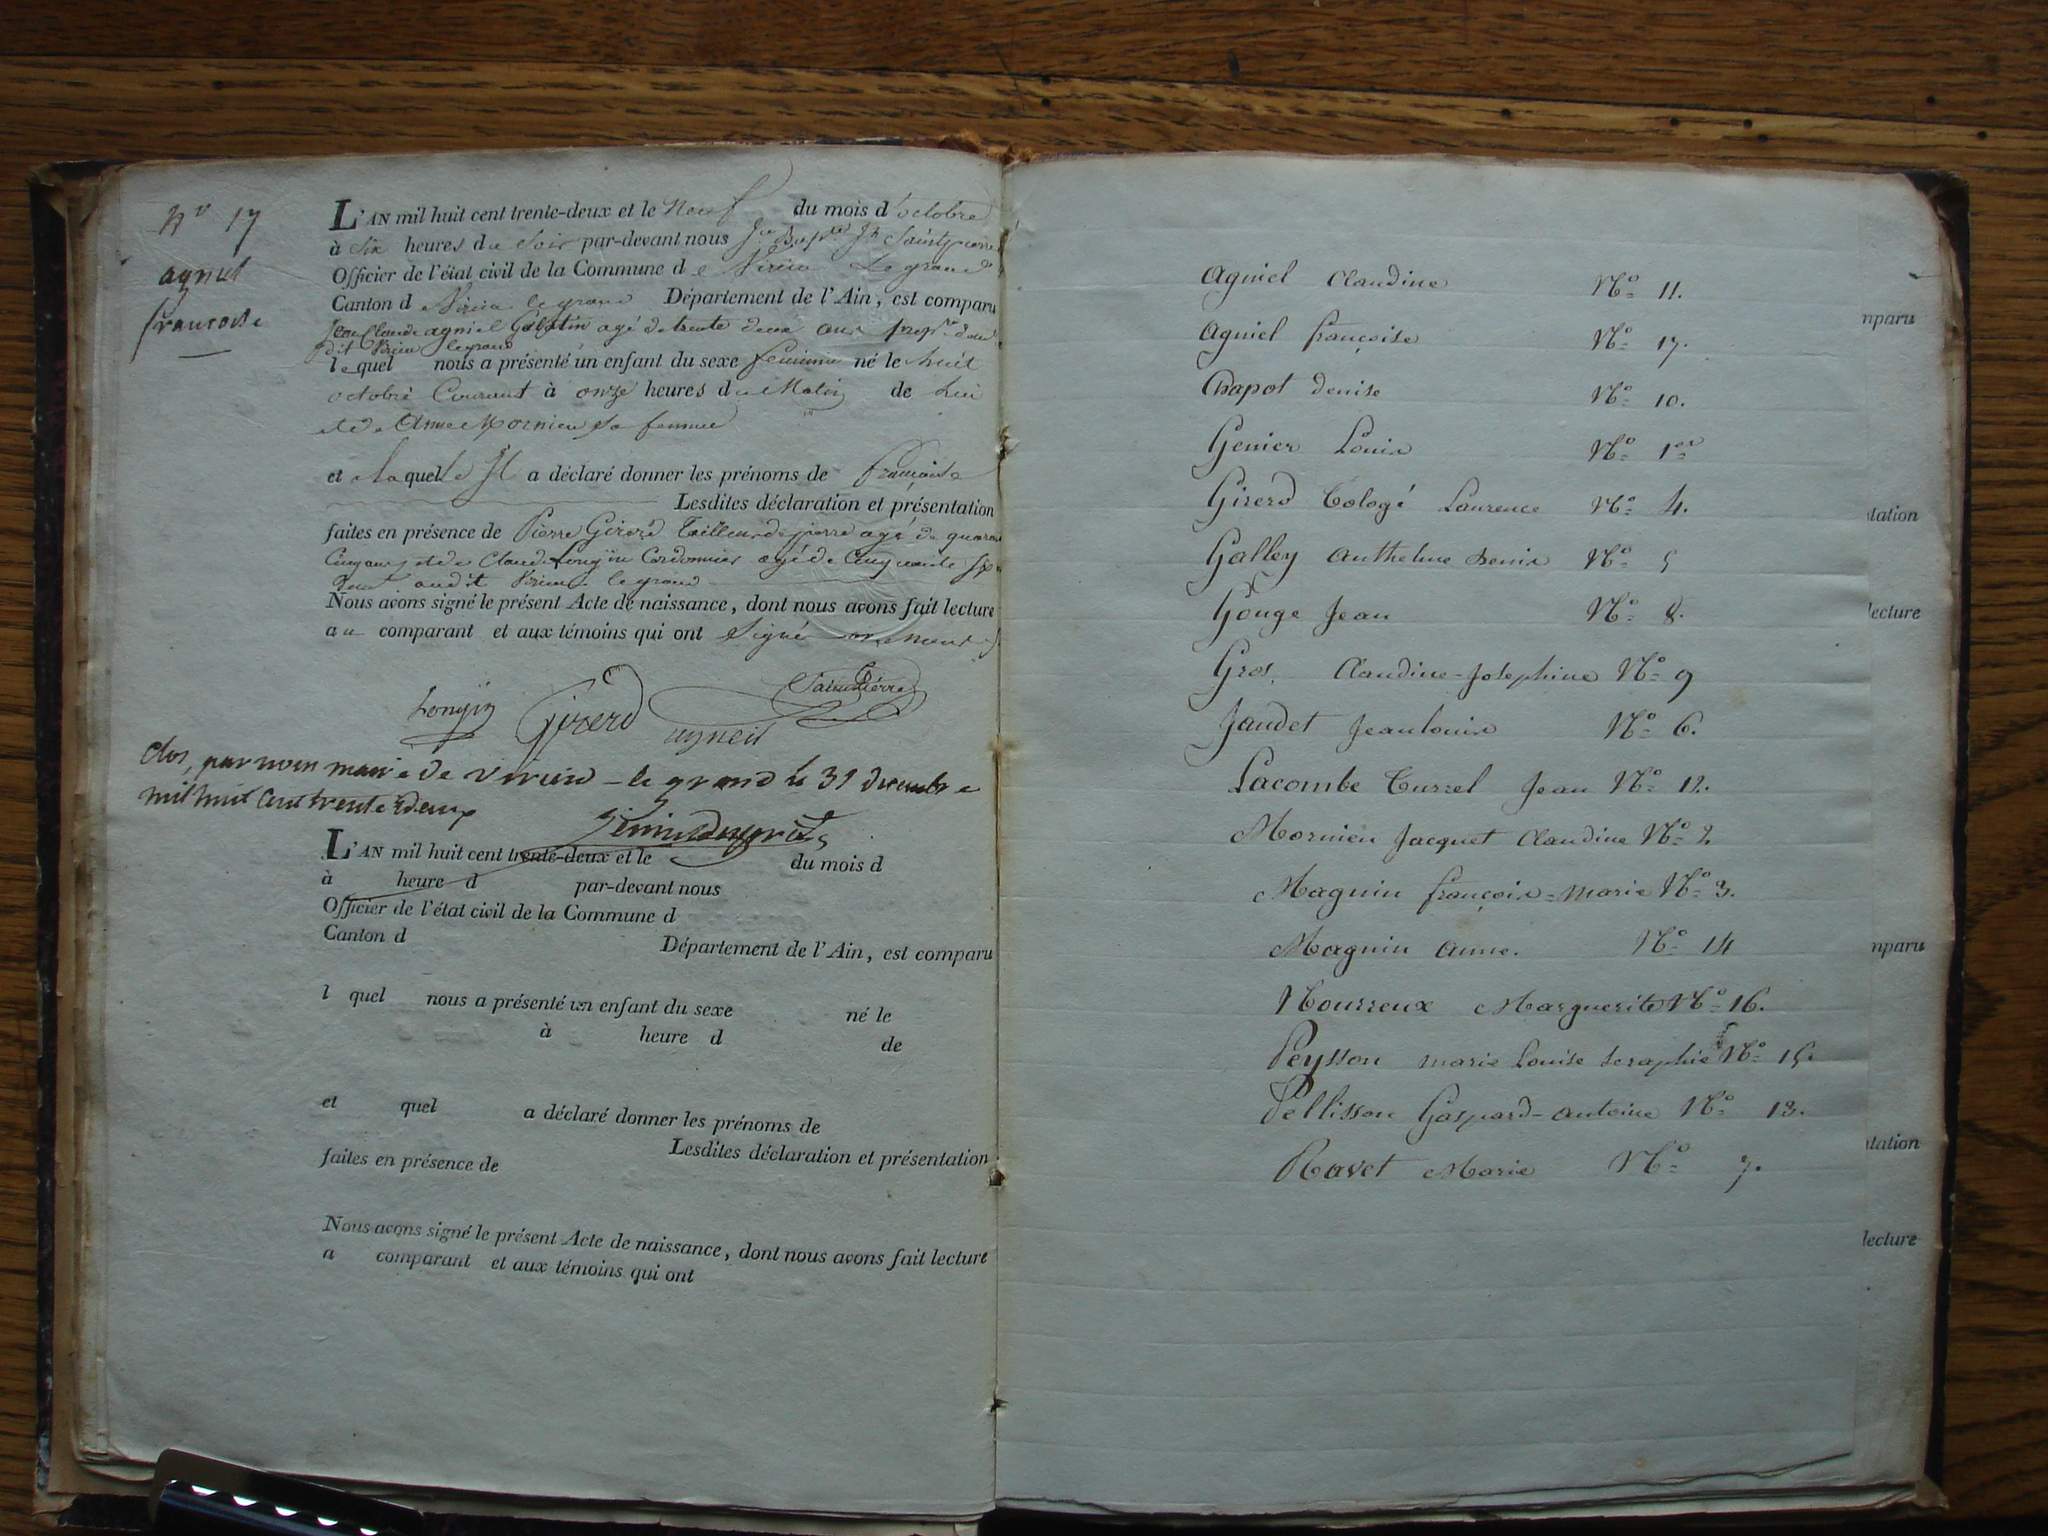 N° 17
agniel
francoise
L'AN mil huit cent trente-deux et le Neuf du mois d'octobre
à Six heures du Soir par-devant nous Saintpierre
Officier de l'état civil de la Commune de Virieu Le grand
Canton de Virieu le grand Département de l'Ain, est comparu
Jean Claude agniel Gabatin agé de trente deux ans
dit Virieu legrand
lequel nous a présenté un enfant du sexe feminin né le huit
octobre Courant à onze heures du Matin de Lui
et de Anne Mornieu Sa femme
et laquelle Il a déclaré donner les prénoms de Francoise
Lesdites déclaration et présentation
faites en présence de Pierre Girerd tailleur de pierre agé de
et de Claude Longin Cordonnier agé de Cinquante
audit Virieu le grand
Nous avons signé le présent Acte de naissance, dont nous avons fait lecture
au comparant et aux témoins qui ont Signé
Longin Girerd agneil Saintpierre
Clos, par nous maire de Virieu-le grand le 31 décembre
mil huit Cent trente deux
L'AN mil huit cent trente-deux et le du mois d
à heure d par-devant nous
Officier de l'état civil de la Commune d
Canton d Département de l'Ain, est comparu
l quel nous a présenté un enfant du sexe né le
à heure d de
et quel a déclaré donner les prénoms de
Lesdites déclaration et présentation
faites en présence de
Nous avons signé le présent Acte de naissance, dont nous avons fait lecture
a comparant et aux témoins qui ont
Agniel Claudine N° 11.
Agniel françoise N° 17.
Chapot denise N° 10.
Genier Louis N° 1er
Girerd Cologé Laurence N° 4.
Galley Anthelme Denis N° 5
Gouge Jean N° 8.
Gros Claudine-Josephine N° 9
Jaudet Jeanlouis N° 6.
Lacombe Turrel Jean N° 12.
Mornieu Jacquet Claudine N° 2.
Magnin françois-Marie N° 3.
Magnin Anne. N° 14
Nourreux Marguerite N° 16.
Peysson marie Louise Seraphie N° 15.
Pellisson Gaspard-antoine N° 13.
Ravet Marie N° 7.
mparu
tation
lecture
mparu
tation
lecture